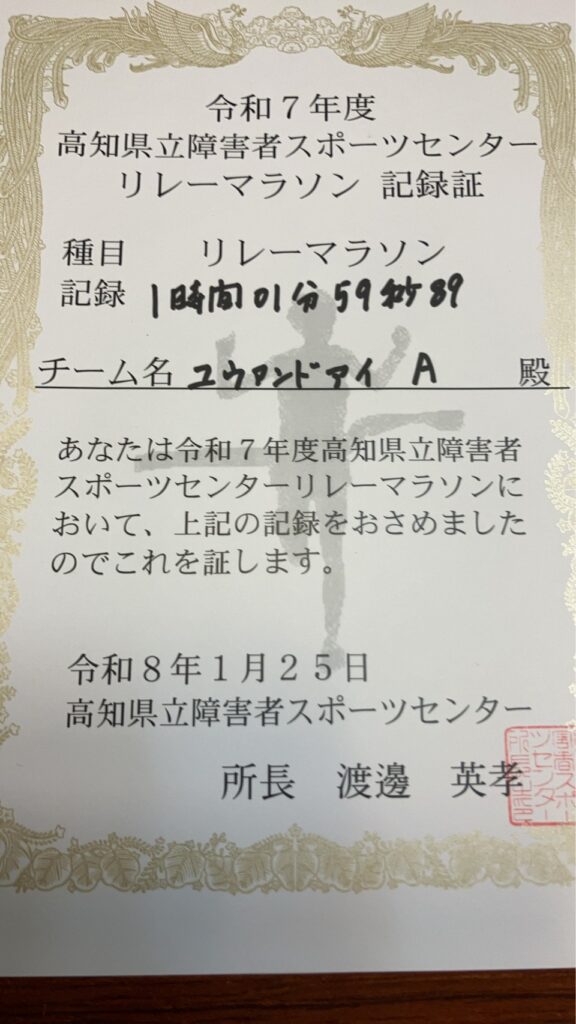 令和７年度
高知県立障害者スポーツセンター
リレーマラソン 記録証
種目　リレーマラソン
記録 1時間01分59秒89
チーム名 ユウアンドアイ A 殿
あなたは令和７年度高知県立障害者
スポーツセンターリレーマラソンに
おいて、上記の記録をおさめました
のでこれを証します。
令和８年１月２５日
高知県立障害者スポーツセンター
所長　渡邊　英孝